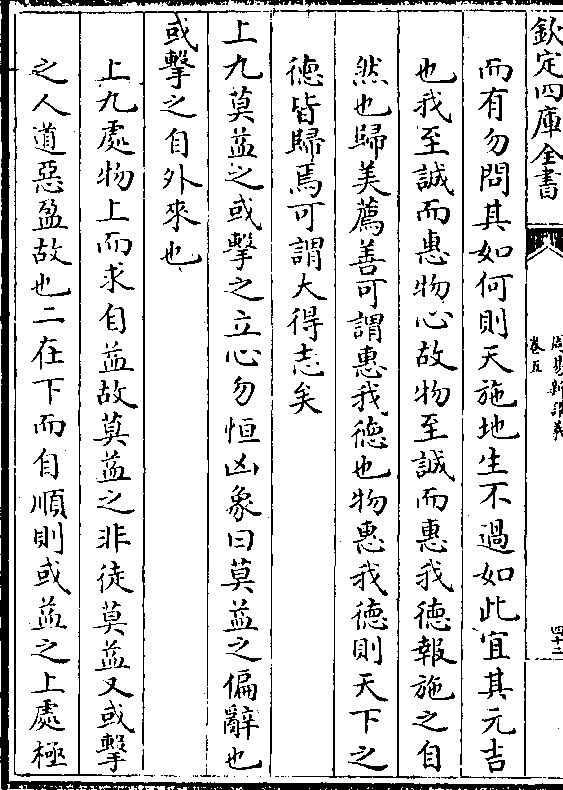 欽定四庫全書
周易新講義
卷五
四十二
而有勿問其如何則天施地生不過如此宜其元吉
也我至誠而惠物心故物至誠而惠我德報施之自
然也歸美薦善可謂惠我德也物惠我德則天下之
德皆歸焉可謂大得志矣
上九莫益之或擊之立心勿恒凶象曰莫益之偏辭也
或擊之自外來也
上九處物上而求自益故莫益之非徒莫益又或擊
之人道惡盈故也二在下而自順則或益之上處極